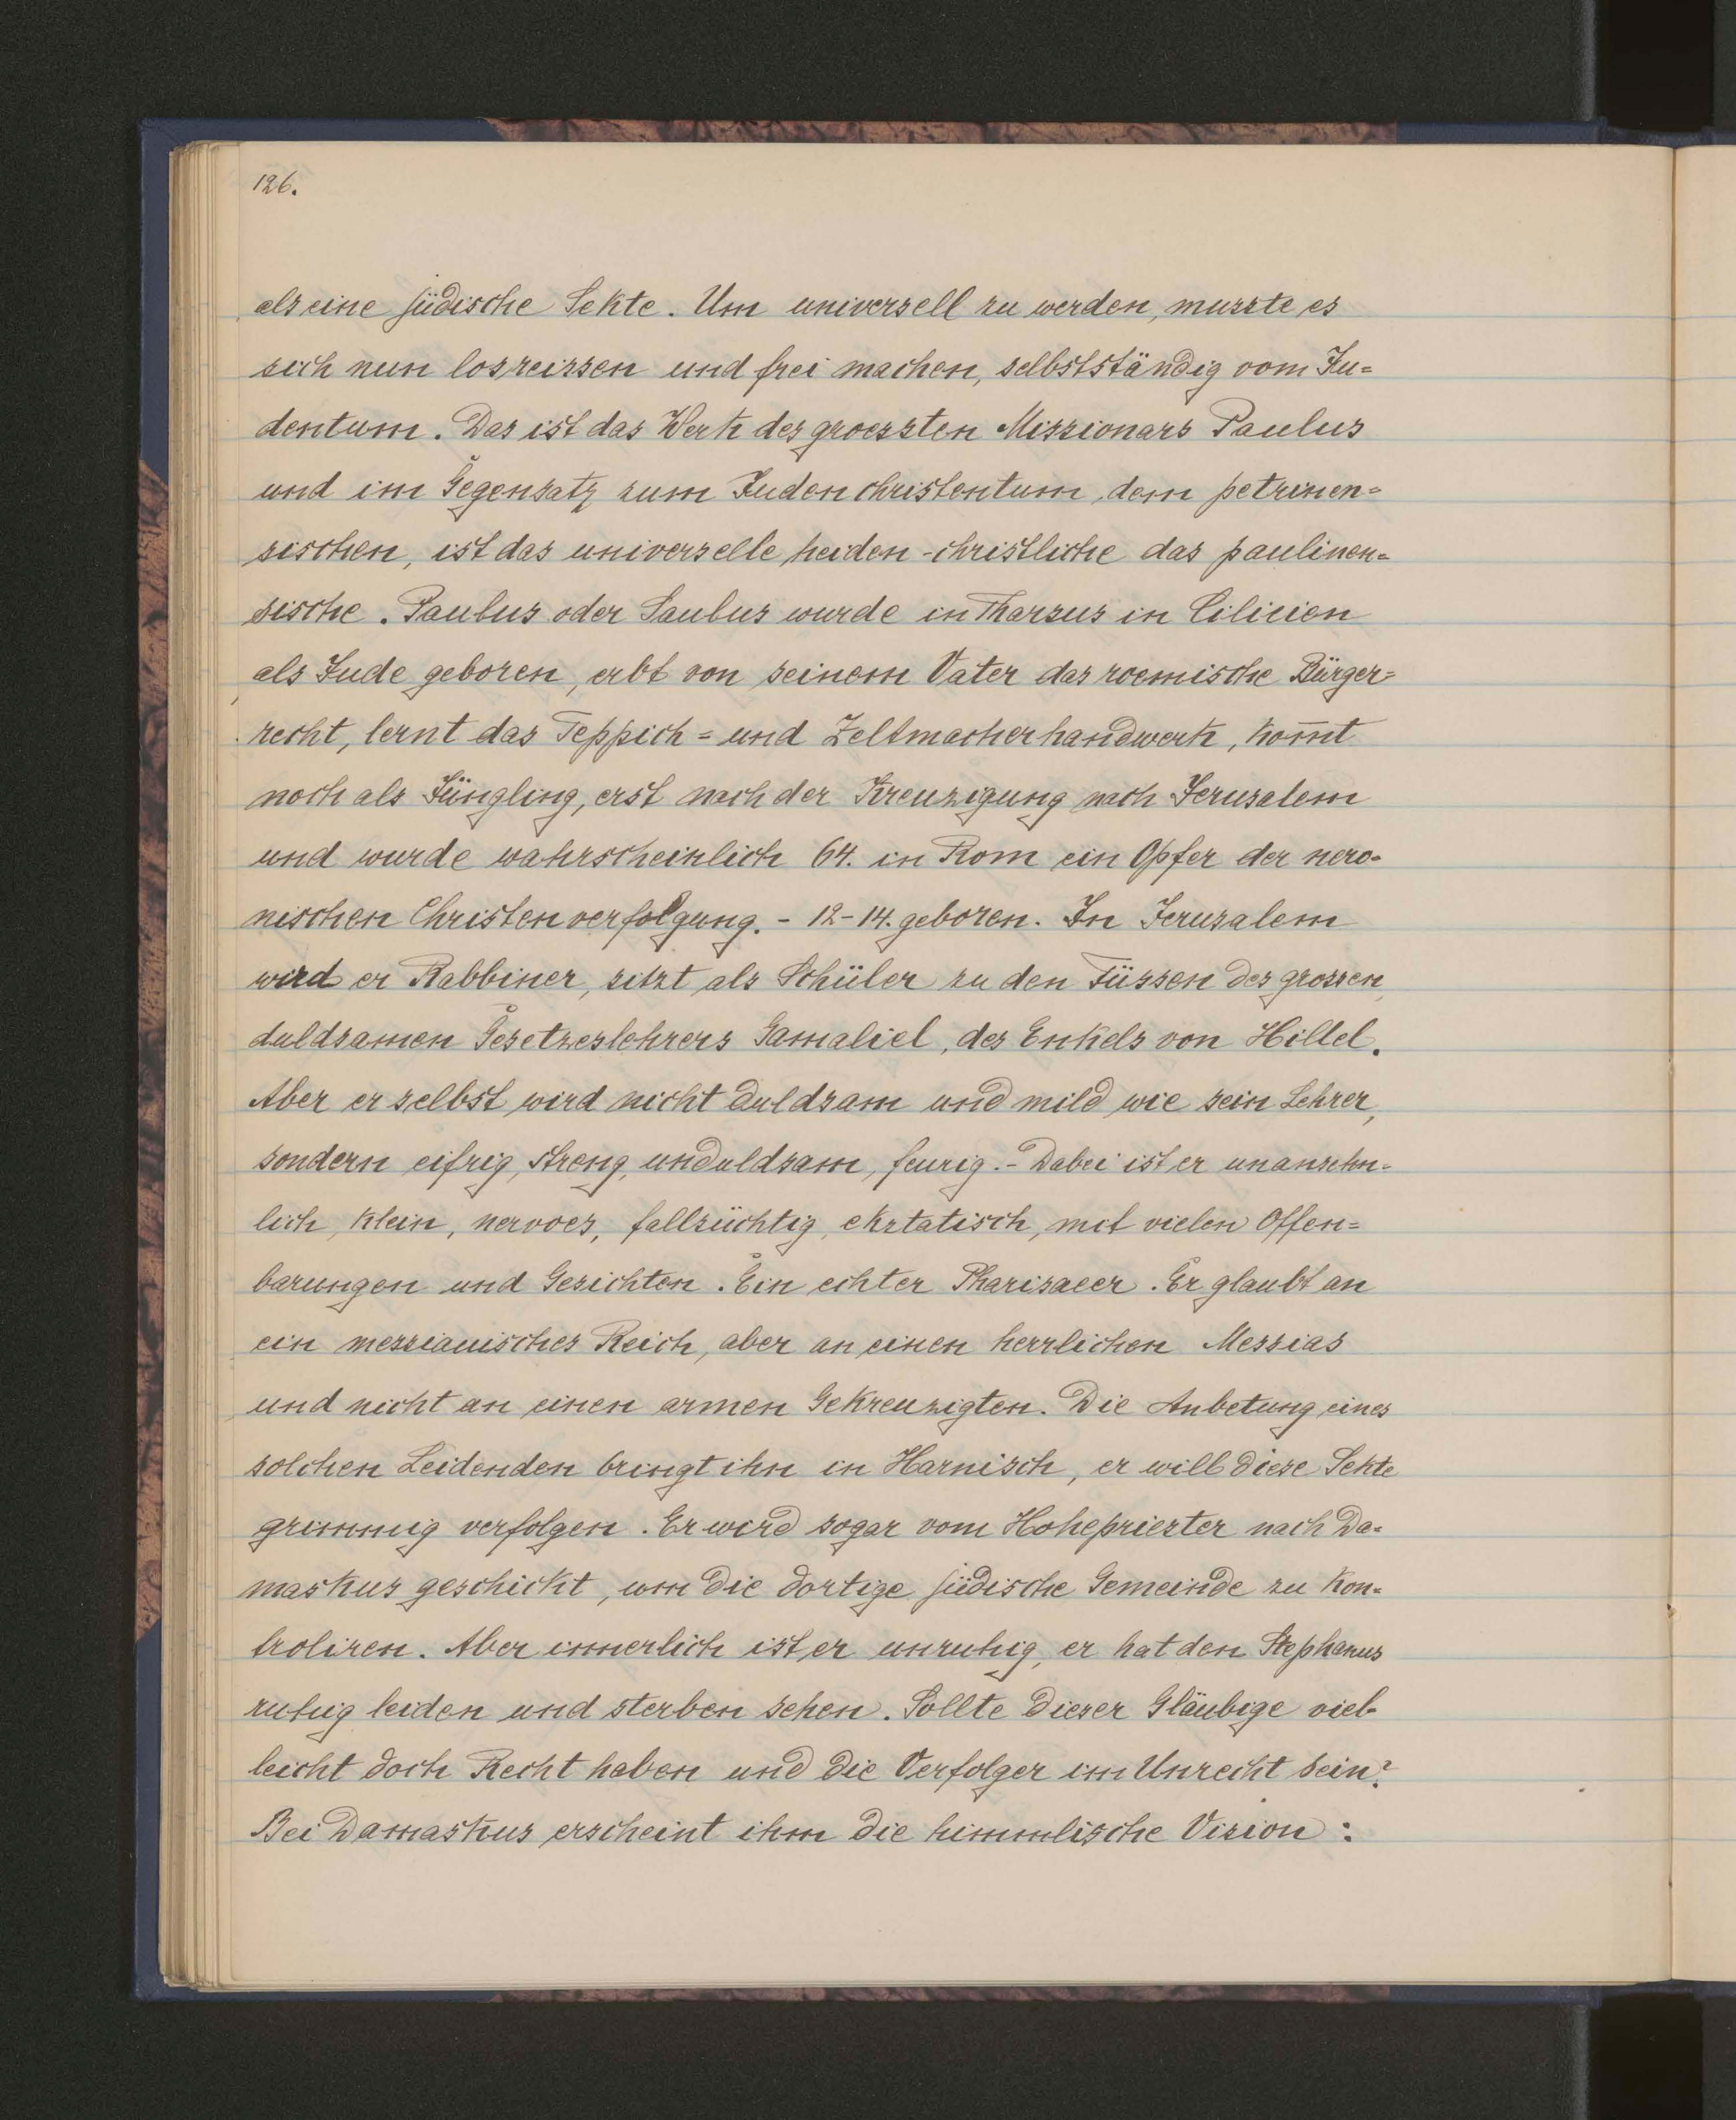 126.
als eine jüdische Sekte. Um universell zu werden, musste es
sich nun losreissen und frei machen, selbstständig vom Ju=
dentum. Das ist das Werk des groessten Missionars Paulus
und im Gegensatz zum Judenchristentum, dem petrinen=
sischen, ist das universelle heiden-christliche das paulinen=
sische. Paulus oder Saulus wurde in Tharsus in Cilicien
als Jude geboren, erbt von seinem Vater das roemische Bürger=
recht, lernt das Teppich= und Zeltmacherhandwerk, kom̄t
noch als Jüngling, erst nach der Kreuzigung nach Jerusalem
und wurde wahrscheinlich 64. in Rom ein Opfer der nero=
nischen Christenverfolgung. - 12-14. geboren. In Jerusalem
wird er Rabbiner, sitzt als Schüler zu den Füssen des grossen,
duldsamen Gesetzeslehrers Gamaliel, des Enkels von Hillel.
Aber er selbst wird nicht duldsam und mild wie sein Lehrer,
sondern eifrig, streng, unduldsam, feurig. - Dabei ist er unansehn=
lich, klein, nervoes, fallsüchtig, ekstatisch, mit vielen Offen=
barungen und Gesichten. Ein echter Pharisaeer. Er glaubt an
ein messianisches Reich, aber an einen herrlichen Messias
und nicht an einen armen Gekreuzigten. Die Anbetung eines
solchen Leidenden bringt ihn in Harnisch, er will diese Sekte
grimmig verfolgen. Er wird sogar vom Hohepriester nach Da=
maskus geschickt, um die dortige jüdische Gemeinde zu kon=
troliren. Aber innerlich ist er unruhig, er hat den Stephanus
ruhig leiden und sterben sehen. Sollte dieser Gläubige viel=
leicht doch Recht haben und die Verfolger im Unrecht sein?
Bei Damaskus erscheint ihm die himmlische Vision: